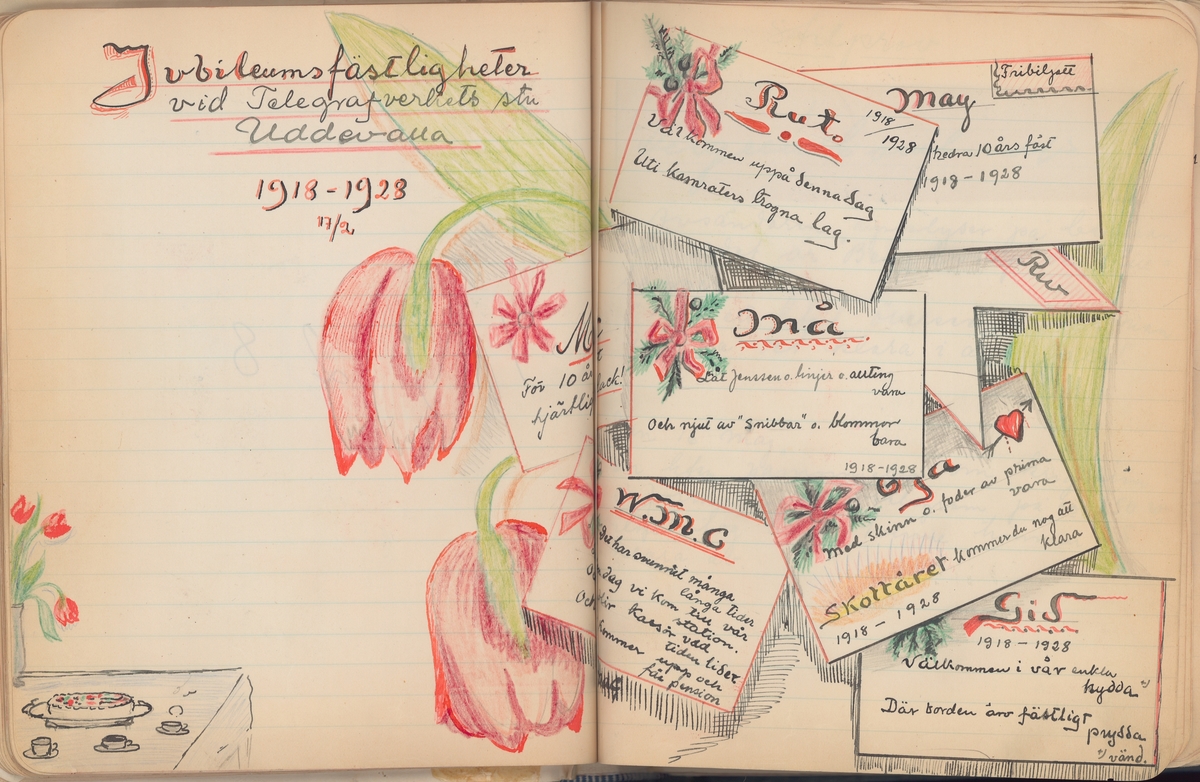 Jubileumsfästligheter
vid Telegrafverkets stn
Uddevalla
1918-1928
17/2
För 10 år
hjärtlig
ack!
Rut.
1918/1928
Välkommen uppå denna dag
Uti kamraters trogna lag.
Fribiljett
May
hedra 10 års fäst
1918-1928
Må
Låt Jenssen o. linjer o. allting
vara
Och njut av "snibbar" o. blommor
bara
1918-1928
Med skinn o. foder av prima
vara
Skottåret kommer du nog att
klara
1918-1928
W.M.C
du har svunnit många
långa tider
dag vi kom till vår
station.
kassör vdd
tiden lider
kommer upp och
får pension
GiS
1918-1928
Välkommen i vår enkla
hydda *)
Där borden äro fästligt
prydda
*) vänd.